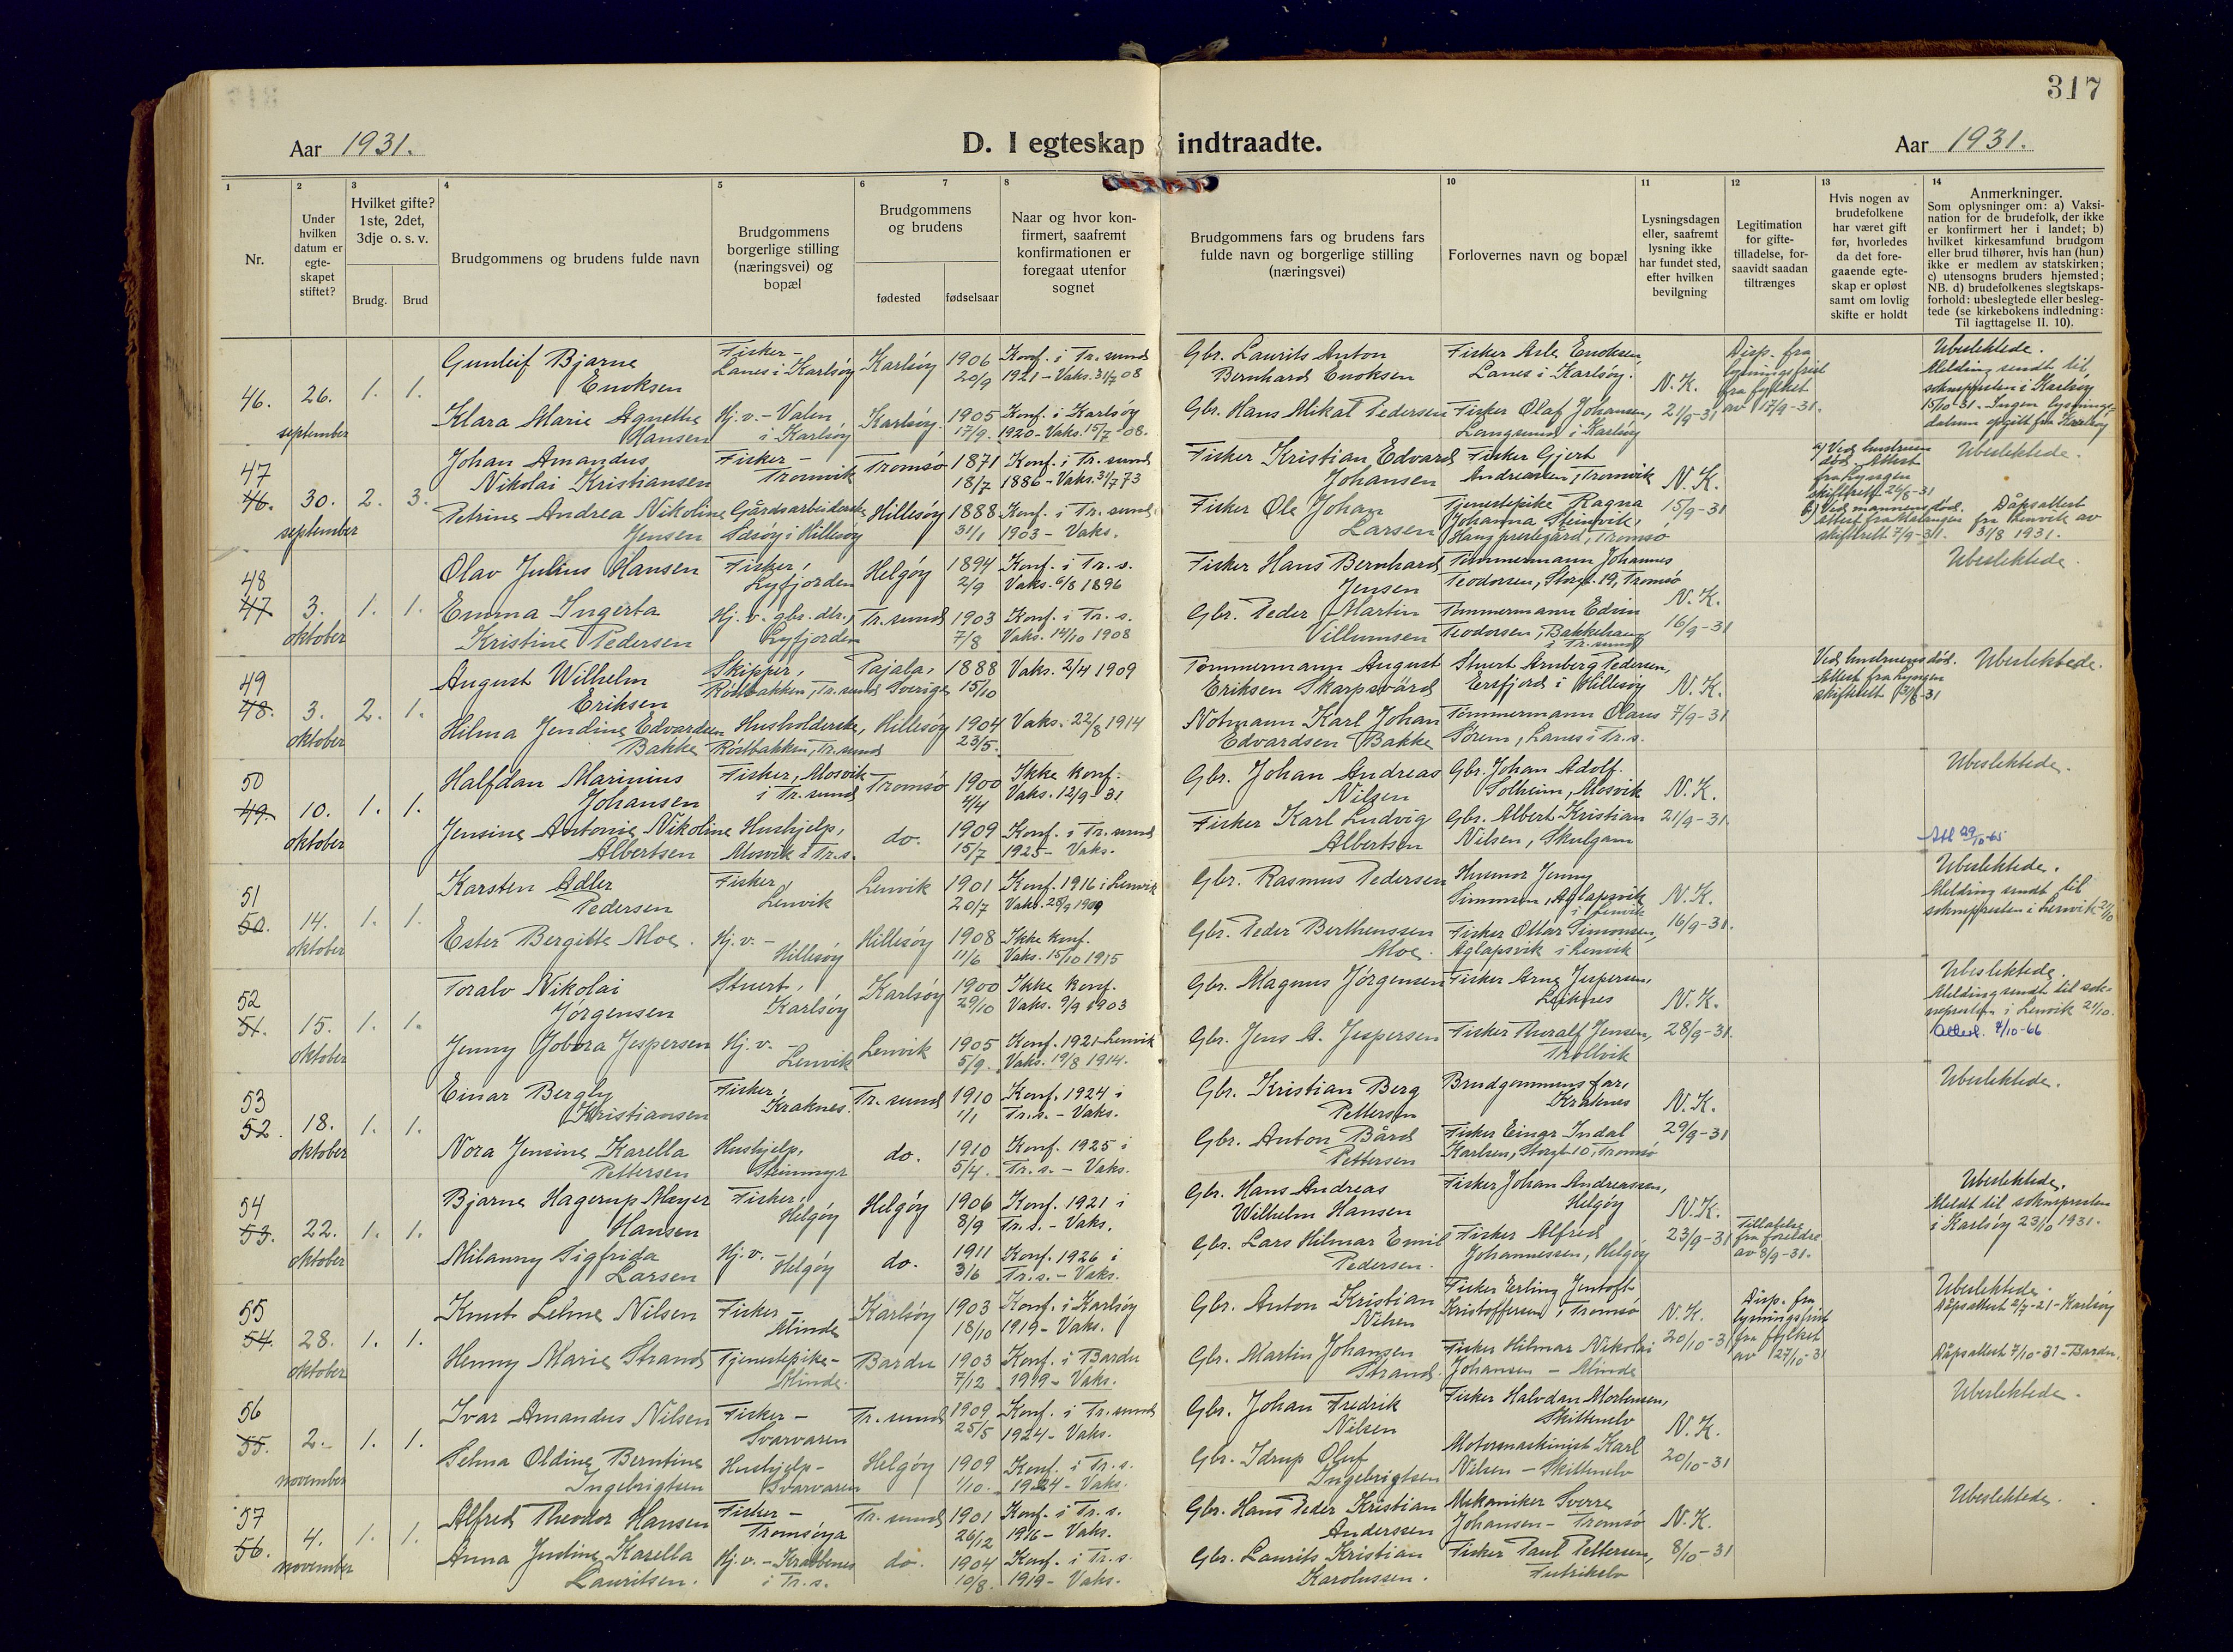 317
Aar 1931.
D. I egteskap indtraadte.
Aar 1931.
1
2
3
4
5
6
7
8
10
11
12
13
14
Nr.
Under hvilken datum er egte-skapet stiftet?
Hvilket gifte? 1ste, 2det, 3dje o. s. v.
Brudg.
Brud
Brudgommens og brudens fulde navn
Brudgommens borgerlige stilling (næringsvei) og bopæl
Brudgommens og brudens
fødested
fødselsaar
Naar og hvor kon-firmert, saafremt konfirmationen er foregaat utenfor sognet
Brudgommens fars og brudens fars fulde navn og borgerlige stilling (næringsvei)
Forlovernes navn og bopæl
Lysningsdagen eller, saafremt lysning ikke har fundet sted, efter hvilken bevilgning
Legitimation for gifte-tilladelse, for-saavidt saadan tiltrænges
Hvis nogen av brudefolkene har været gift før, hvorledes da det fore-gaaende egte-skap er opløst samt om lovlig skifte er holdt
Anmerkninger.
Som oplysninger om: a) Vaksi-nation for de brudefolk, der ikke er konfirmert her i landet; b) hvilket kirkesamfund brudgom eller brud tilhører, hvis han (hun) ikke er medlem av statskirken; c) utensogns bruders hjemsted; NB. d) brudefolkenes slegtskaps-forhold: ubeslegtede eller besleg-tede (se kirkebokens indledning: Til iagttagelse II. 10).
46. 26. september 1. 1.
Gunleif Bjarne Enoksen
Fisker - Lanes i Karlsöy
Karlsöy 1906 20/9
Konf. i Tr.sund 1921 - Vaks. 31/7 08
Gbr. Laurits Anton Bernhard Enoksen
Fisker Asle Enoksen, Lanes i Karlsöy.
N.K. 21/9-31
Disp. fra lysningsfrist fra fylket av 17/9-31.
Ubeslektede. Melding sendt til soknepresten i Karlsöy 15/10-31. Ingen lysnings-datum opgitt fra Karlsöy
Klara Marie Agnethe Hansen
Hj.v. - Valen i Karlsöy
Karlsöy. 1905 17/9.
Konf. i Karlsöy 1920 - Vaks. 15/7 08.
Gbr. Hans Mikal Pedersen
Fisker Olaf Johansen, Langsund i Karlsöy
47 46. 30. september 2. 3.
Johan Amandus Nikolai Kristiansen
Fisker - Tromvik
Tromsö 1871 18/7
Konf. i Tr.sund 1886 - Vaks. 31/7 73
Fisker Kristian Edvard Johansen
Fisker Gjert Andreassen, Tromvik
N.K. 15/9-31
a) Ved hustruens död. Attest fra Lyngen skifterett 26/8-31
b) Ved mannens död. Attest fra Malangen skifterett 7/9-31.
Ubeslektede.
Dåpsattest fra Lenvik av 31/8 1931.
Petrine Andrea Nikoline Jensen
Gårdsarbeiderske
Hillesöy 1888 31/1
Konf. i Tr.sund. 1903 - Vaks.
Fisker Ole Johan Larsen
Tjenestepike Ragna Johanna Steinvik,
48 47 3. oktober 1. 1.
Olav Julius Hansen
Fisker, Lyfjorden
Helgöy 1894 2/9
Konf. i Tr.s. Vaks. 6/8 1896
Fisker Hans Bernhard Jensen
Tømmermann Johannes Teodorsen, Storgt. 19, Tromsö
N.K. 16/9-31
Ubeslektede.
Emma Ingerta Kristine Pedersen
Hj.v. gbr.dtr., Lyfjorden
Tr.sund 1903 7/8
Konf. i Tr.s. Vaks. 14/10 1908
Gbr. Peder Martin Villumsen
Tømmermann Edvin Teodorsen, Bakkehaug i Tr.sund
49 48. 3. oktober 2. 1.
August Wilhelm Eriksen
Skipper, Röstbakken, Tr.sund
Pajala, Sverige 1888 15/10
Vaks. 2/4 1909
Tømmermann August Eriksen Skarpsvärd
Stuert Arnberg Pedersen, Ersfjord i Hillesöy
N.K. 7/9-31
Ved hustruens död. Attest fra Lyngen skifterett
Ubeslektede.
Hilma Jendine Edvardsen Bakke
Husholderske, Röstbakken, Tr.sund
Hillesöy 1904 23/5.
Vaks. 22/8 1914
Notmann Karl Johan Edvardsen Bakke
Tømmermann Olaus Sörem, Lanes i Tr.s.
50 49. 10. oktober 1. 1.
Halfdan Marinius Johansen
Fisker, Mosvik i Tr.sund
Tromsö 1900 4/4
Ikke konf. Vaks. 12/9-31
Gbr. Johan Andreas Nilsen
Gbr. Johan Adolf Solheim, Mosvik
N.K. 21/9-31.
Ubeslektede.
Att 29/10-65
Jensine Antonie Nikoline Albertsen
Hushjelp, Mosvik i Tr.s.
do. 1909 15/7
Konf. i Tr.sund 1925 - Vaks.
Fisker Karl Ludvig Albertsen
Gbr. Albert Kristian Nilsen, Skulgam
51 50. 14. oktober 1. 1.
Karsten Adler Pedersen
Fisker, Lenvik
Lenvik 1901 20/7
Konf. 1916 i Lenvik Vaks. 25/9 1909
Gbr. Rasmus Pedersen
Husmor Jenny Simonsen, Aglapsvik i Lenvik
N.K. 16/9-31.
Ubeslektede. Melding sendt til soknepresten i Lenvik 21/10
Ester Bergitte Moe.
Hj.v. - Hillesöy
Hillesöy 1908 11/6
Ikke konf. Vaks. 15/10 1915
Gbr. Peder Berthenssen Moe.
Fisker Ottar Simonsen, Aglapsvik i Lenvik
52 51. 15. oktober 1. 1.
Toralv Nikolai Jörgensen
Stuert, Karlsöy
Karlsöy 1900 29/10
Ikke konf. Vaks. 9/9 1903
Gbr. Magnus Jörgensen
Fisker Arne Jespersen, Leiknes
N.K. 28/9-31.
Ubeslektede. Melding sendt til sok-nepresten i Lenvik 21/10.
Attest. 4/10-66
Jenny Jobora Jespersen
Hj.v. - Lenvik
Lenvik 1905 5/9.
Konf. 1921 Lenvik Vaks. 19/8 1914.
Gbr. Jens A. Jespersen
Fisker Thoralf Jensen, Trollvik
53 52. 18. oktober 1. 1.
Einar Bergly Kristiansen
Fisker, Kraknes.
Tr.sund 1910 1/1
Konf. 1924 i Tr.s. - Vaks.
Gbr. Kristian Berg Pettersen
Brudgommens far, Kraknes
N.K. 29/9-31
Ubeslektede.
Nora Jensine Karella Pettersen
Hushjelp, Steinmyr
do. 1910 5/4.
Konf. 1925 i Tr.s. - Vaks.
Gbr. Anton Bård Pettersen
Fisker Einar Indal Karlsen, Storgt 10, Tromsö
54 53. 22. oktober 1. 1.
Bjarne Hagerup Meyer Hansen
Fisker, Helgöy
Helgöy 1906 8/9
Konf. 1921 i Tr.s. - Vaks.
Gbr. Hans Andreas Wilhelm Hansen
Fisker Johan Andreassen, Helgöy
N.K. 23/9-31
Tillatelse fra foreldre av 8/9-31.
Ubeslektede. Meldt til soknepresten i Karlsöy 23/10 1931.
Milanny Sigfrida Larsen
Hj.v. - Helgöy
do. 1911 3/6
Konf. 1926 i Tr.s. - Vaks.
Gbr. Lars Hilmar Emil Pedersen.
Fisker Alfred Johannessen, Helgöy
55 54. 28. oktober 1. 1.
Knut Leine Nilsen
Fisker - Minde
Karlsöy 1903 18/10
Konf. i Karlsöy 1919 - Vaks.
Gbr. Anton Kristian Nilsen
Fisker Erling Jentoft Kristoffersen, Tromsö
N.K. 20/10-31
Disp. fra lysningsfrist fra fylket av 27/10-31
Ubeslektede. Dåpsattest 2/7-21 - Karlsöy
Dåpsattest 7/10-31 - Bardu.
Henny Marie Strand
Tjenestepike - Minde.
Bardu 1903 7/12
Konf. i Bardu 1919 - Vaks.
Gbr. Martin Johansen Strand.
Fisker Hilmar Nikolai Johansen - Minde
56 55. 2. november 1. 1.
Ivar Amandus Nilsen
Fisker - Svarvaren
Tr.sund 1909 25/5
Konf. i Tr.sund 1924 - Vaks.
Gbr. Johan Fredrik Nilsen
Fisker Halvdan Mortensen, Skittenelv
N.K. 20/10-31
Ubeslektede.
Selma Oldine Berntine Ingebrigtsen
Hushjelp - Svarvaren
Helgöy 1909 1/10.
Konf. i Tr.s. 1924 - Vaks.
Gbr. Idrup Oluf Ingebrigtsen
Motormaskinist Karl Nilsen - Skittenelv
57 56. 4. november 1. 1.
Alfred Theodor Hansen
Fisker - Tromsöya
Tr.sund 1901 26/12
Konf. i Tr.s. 1916 - Vaks.
Gbr. Hans Peder Kristian Anderssen
Mekaniker Sverre Johansen - Tromsö
N.K. 8/10-31
Ubeslektede.
Anna Jentine Karella Lauritsen.
Hj.v. - Krabbenes i Tr.s.
do. 1904 10/8.
Konf. i Tr.s. 1919 - Vaks.
Gbr. Laurits Kristian Karolussen.
Fisker Paul Pettersen, Futrikelv